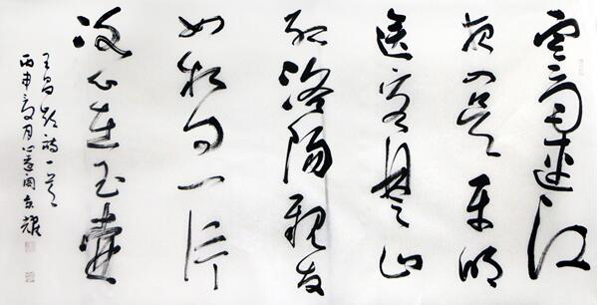 寒雨連江
夜入吴平明
送客楚山
孤洛陽親友
如相问一片
冰心在玉壺
王昌龄詩一首
丙申夏月